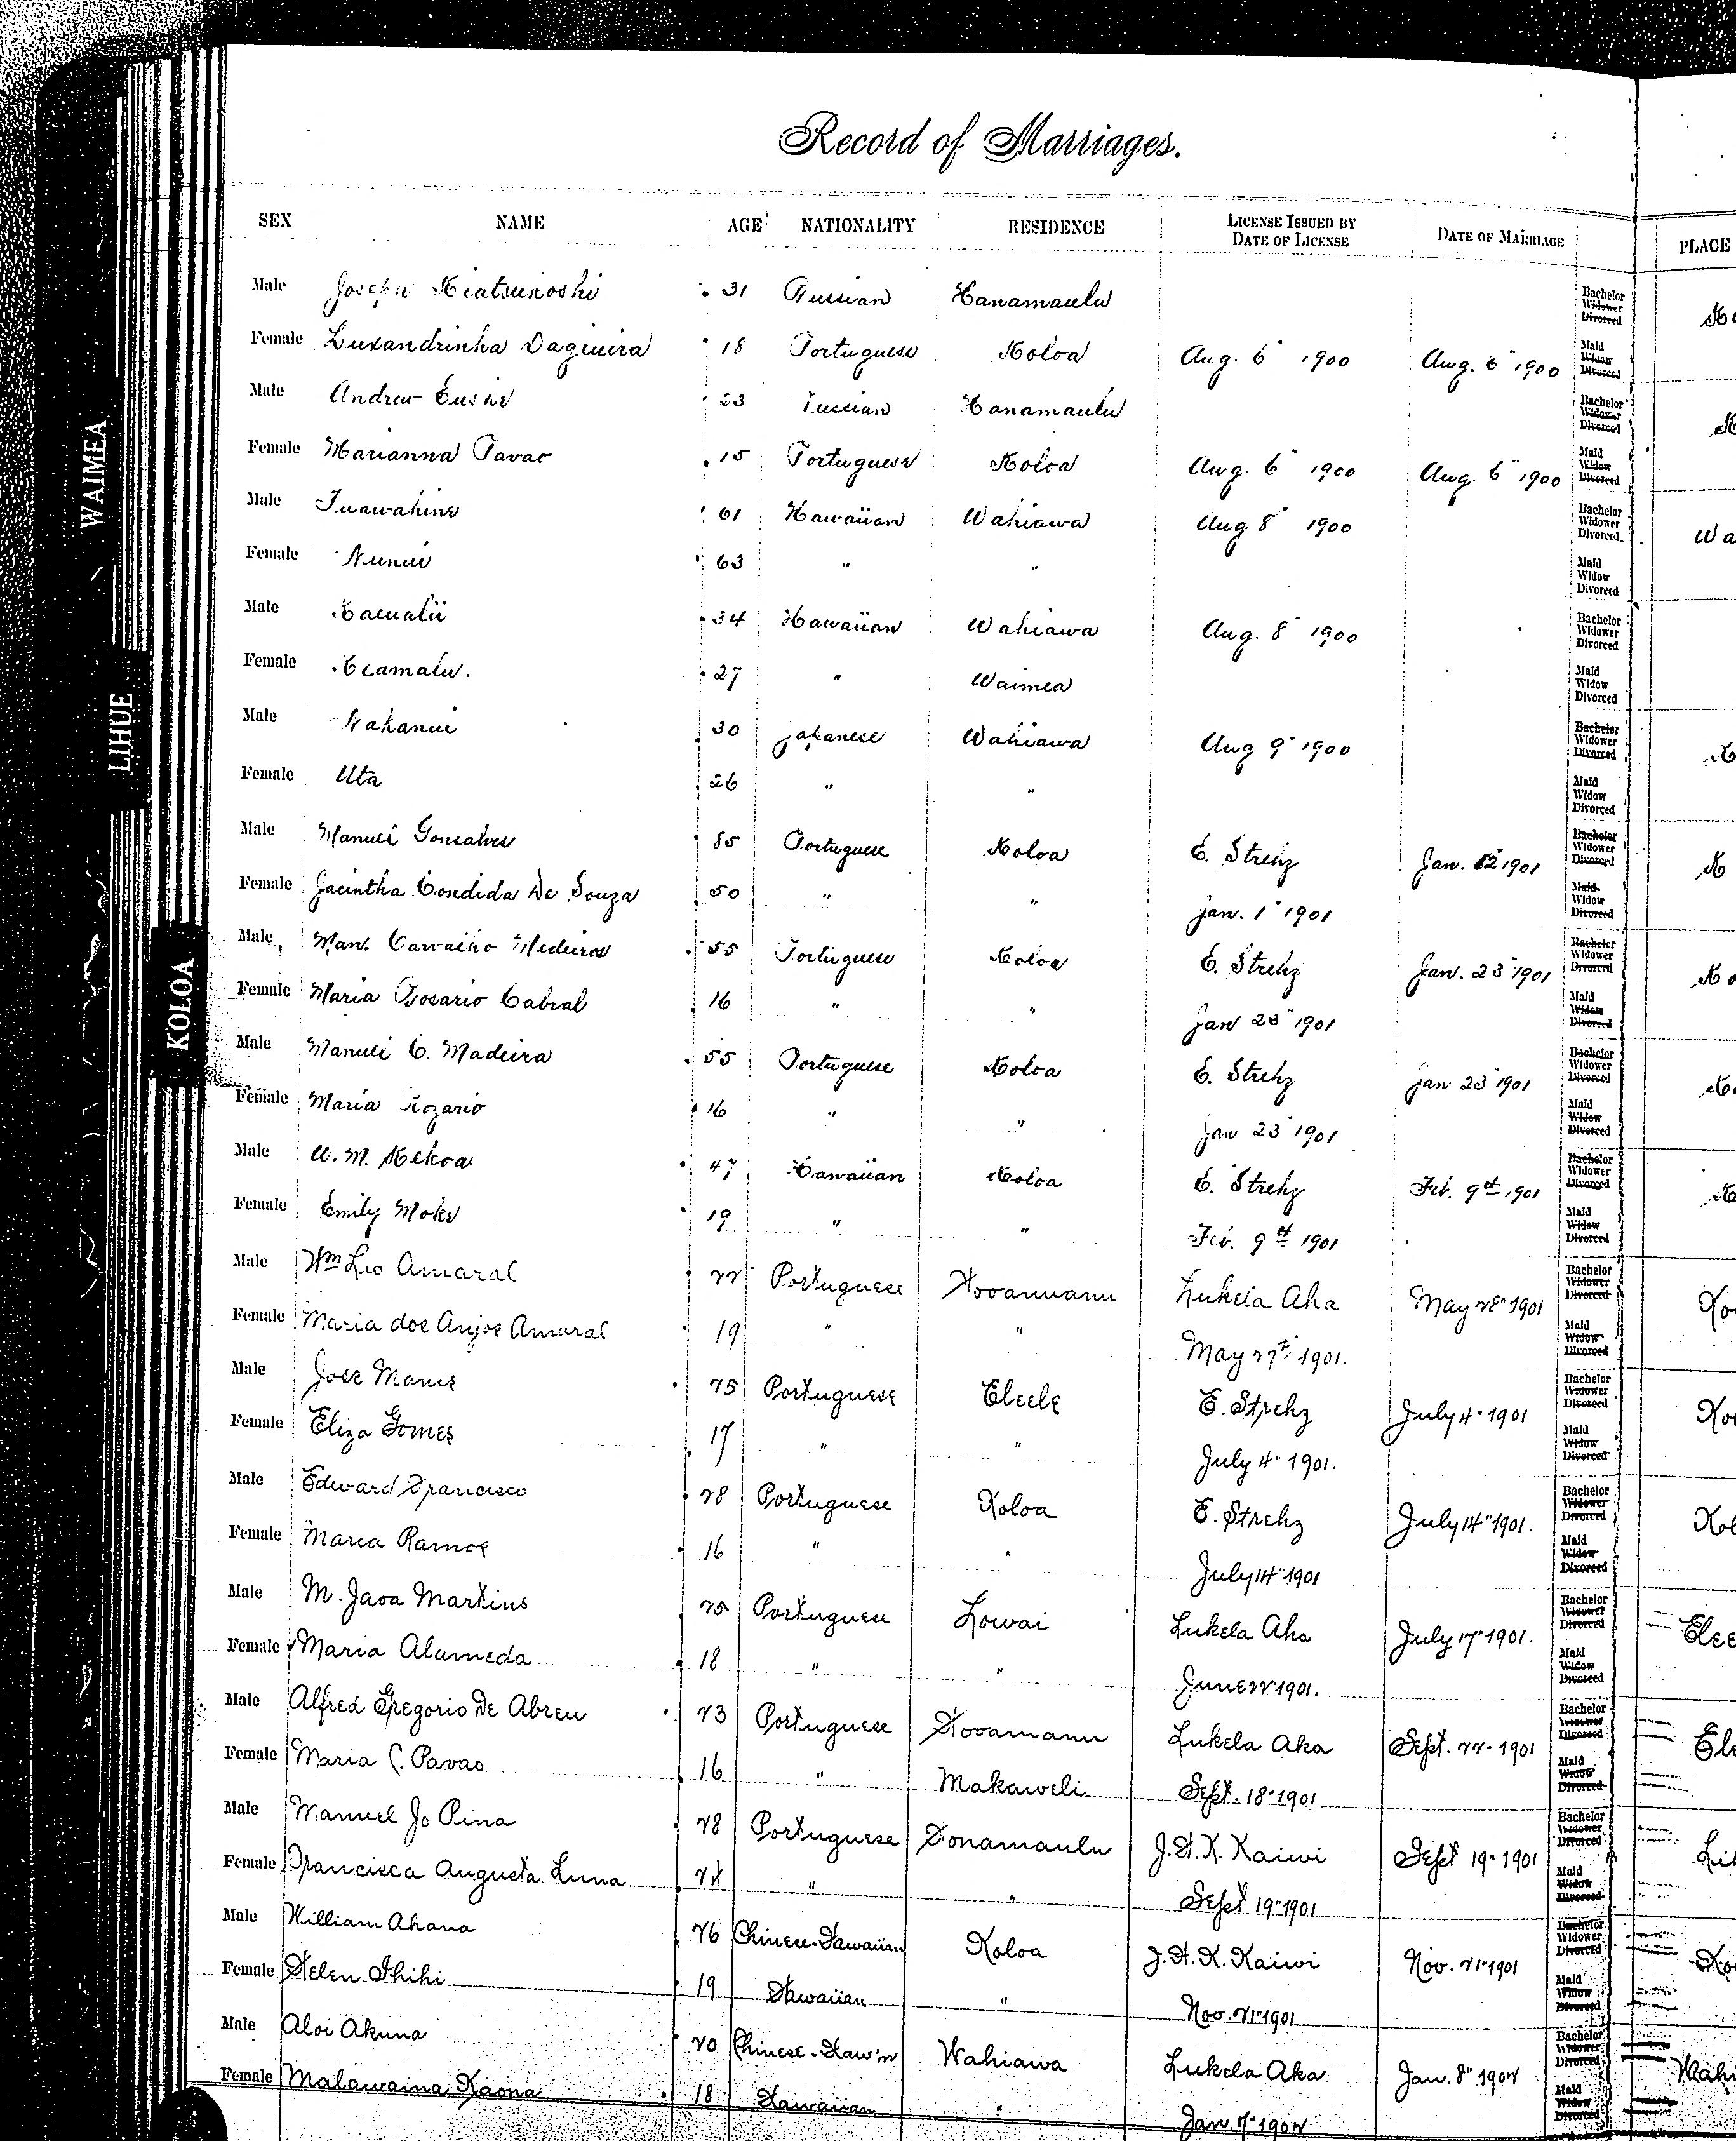 Record of Marriages.
SEX NAME AGE NATIONALITY RESIDENCE LICENSE ISSUED BY DATE OF LICENSE DATE OF MARRIAGE PLACE
Male Joseph 31 Russian Hanamaulu Bachelor Widower Divorced
Female Luxandrinha 18 Portuguese Koloa Aug. 6" 1900 Aug. 6" 1900 Maid Widow Divorced
Male Andrew 23 Russian Hanamaulu Bachelor Widower Divorced
Female Marianna Pavao 15 Portuguese Koloa Aug. 6" 1900 Aug. 6" 1900 Maid Widow Divorced
Male 61 Hawaiian Wahiawa Aug 8" 1900 Bachelor Widower Divorced. Wa
Female 63 " " Maid Widow Divorced
Male 34 Hawaiian Wahiawa Aug. 8" 1900 Bachelor Widower Divorced
Female Keamalu. 27 " Waimea Maid Widow Divorced
Male Nakanui 30 Japanese Wahiawa Aug 9" 1900 Bachelor Widower Divorced
Female Uta 26 " " Maid Widow Divorced
Male Manuel Gonsalves 85 Portuguese Koloa E. Strehz Jan. 12 1901 Bachelor Widower Divorced K
Female Jacintha Condida De Souza 50 " " Jan. 1" 1901 Maid Widow Divorced
Male Man. Carvalho Medeiros 55 Portuguese Koloa E. Strehz Jan. 23" 1901 Bachelor Widower Divorced Ko
Female Maria Rosario Cabral 16 " " Jan 23" 1901 Maid Widow Divorced
Male Manuel C. Madeira 55 Portuguese Koloa E. Strehz Jan 23" 1901 Bachelor Widower Divorced
Female Maria Rozario 16 " " Jan 23" 1901 Maid Widow Divorced
Male U. M. Kekoa 47 Hawaiian Koloa E. Strehz Feb. 9th 1901 Bachelor Widower Divorced
Female Emily Moke 19 " " Feb. 9th 1901 Maid Widow Divorced
Male Wm Leo Amaral 22 Portuguese Lukela Aka May 28" 1901 Bachelor Widower Divorced Ko
Female Maria dos Anjos Amaral 19 " " May 27th 1901. Maid Widow Divorced
Male Jose Manis 25 Portuguese Eleele E. Strehz July 4" 1901 Bachelor Widower Divorced Kol
Female Eliza Gomes 17 " " July 4" 1901. Maid Widow Divorced
Male Edward Francisco 28 Portuguese Koloa E. Strehz July 14" 1901. Bachelor Widower Divorced Kol
Female Maria Ramos 16 " " July 14" 1901 Maid Widow Divorced
Male M. Jaoa Martins 25 Portuguese Lowai Lukela Aka July 17" 1901. Bachelor Widower Divorced Elee
Female Maria Alameda 18 " " June 22" 1901. Maid Widow Divorced
Male Alfred Gregorio De Abreu 23 Portuguese Lukela Aka Sept. 22" 1901 Bachelor Widower Divorced Ele
Female Maria C. Pavao 16 " Makaweli Sept. 18" 1901 Maid Widow Divorced
Male Manuel Jo Pina 28 Portuguese Honamaulu J. H. K. Kaiwi Sept 19" 1901 Bachelor Widower Divorced Li
Female Francisca Augusta Luna 24 " " Sept 19" 1901 Maid Widow Divorced
Male William Ahana 26 Chinese-Hawaiian Koloa J. H. K. Kaiwi Nov. 21" 1901 Bachelor Widower Divorced Ko
Female Helen Ihihi 19 Hawaiian " Nov. 21" 1901 Maid Widow Divorced
Male Aloi Akuna 20 Chinese-Haw'n Wahiawa Lukela Aka Jan. 8" 1902 Bachelor Widower Divorced Wah
Female Malawaina Kaona 18 Hawaiian " Jan. 7" 1902 Maid Widow Divorced
WAIMEA
LIHUE
KOLOA